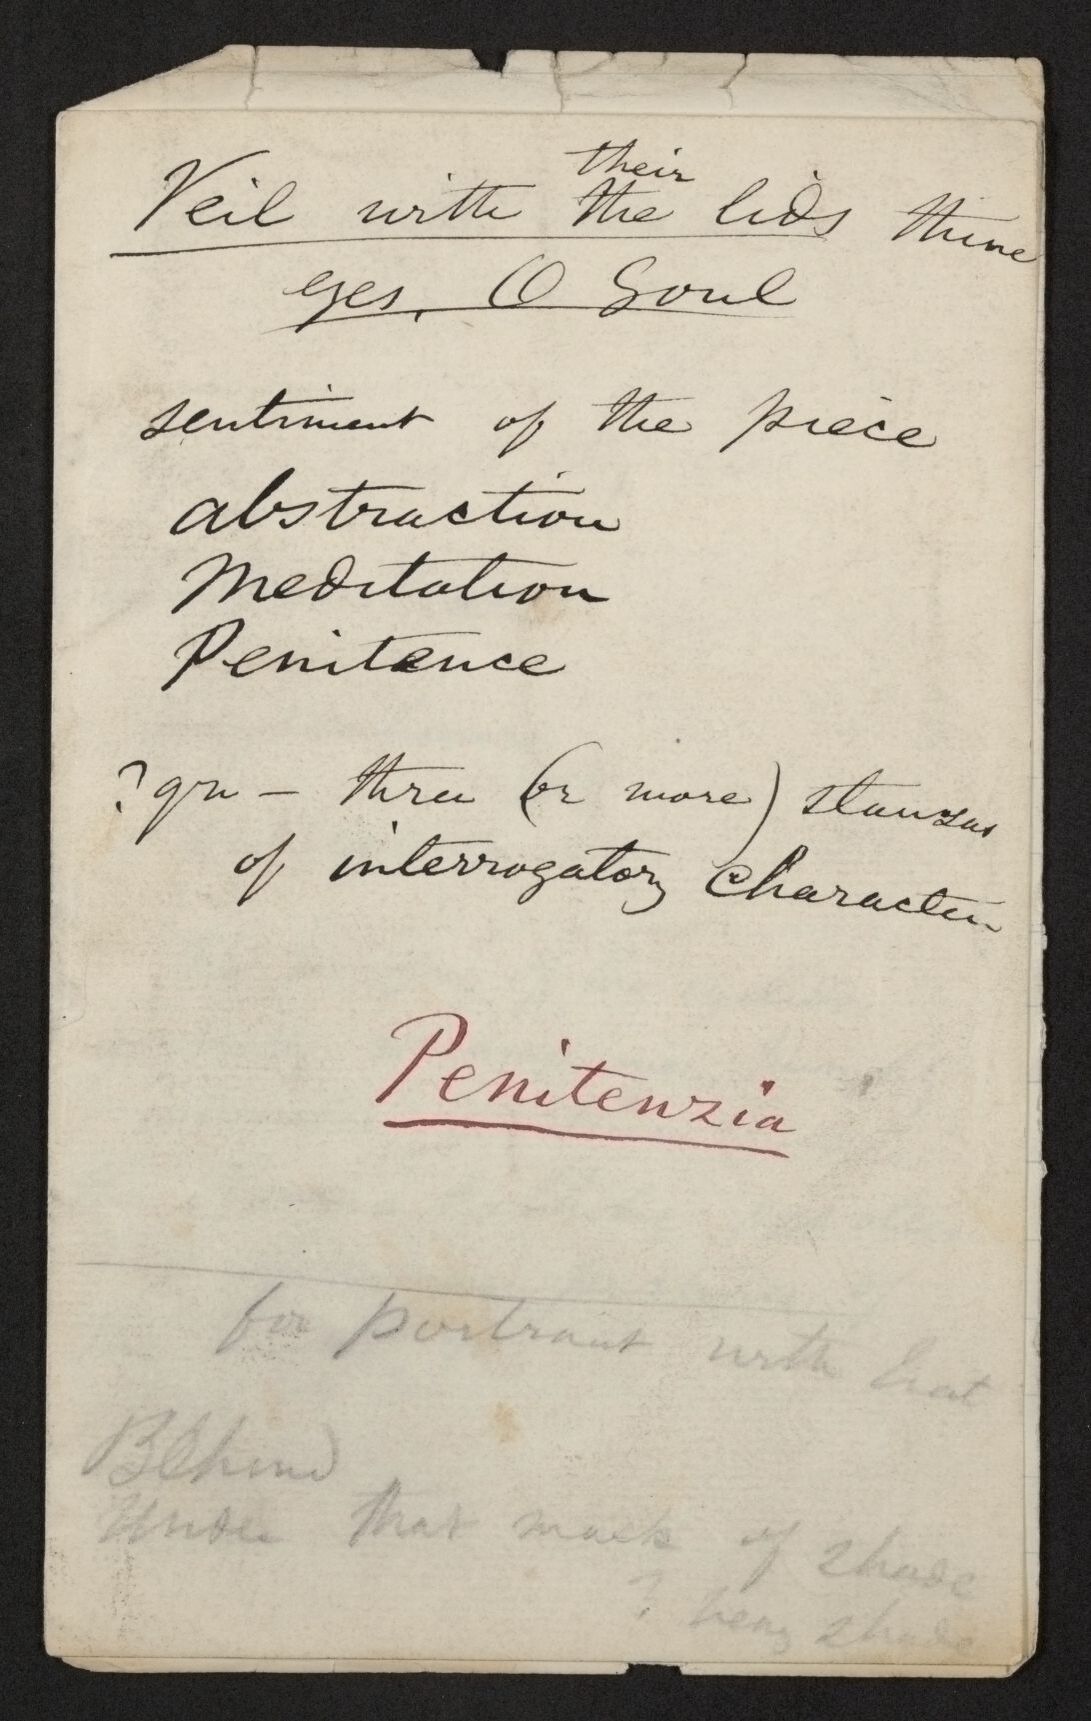 their
Veil with the lids thine
eyes, O Soul
sentiment of the piece
abstraction
Meditation
Penitence
? qu – three (or more) stanzas
of interrogatory character
Penitenzia
for portrait with hat
Behind
Under that mask of shade
? heavy shade